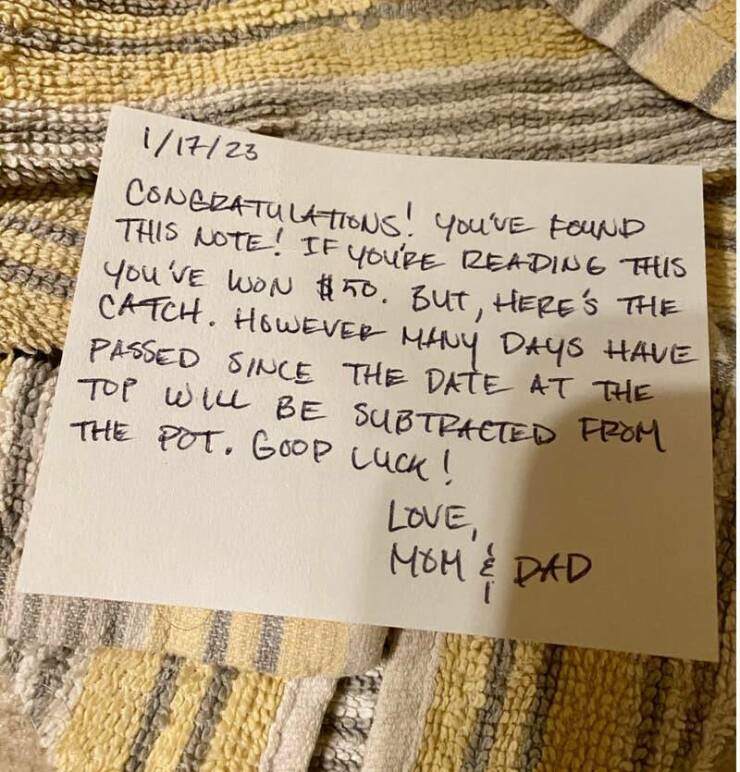 1/17/23
CONGRATULATIONS! YOU'VE FOUND
THIS NOTE! IF YOU'RE READING THIS
YOU'VE WON $50. BUT, HERE'S THE
CATCH. HOWEVER MANY DAYS HAVE
PASSED SINCE THE DATE AT THE
TOP WILL BE SUBTRACTED FROM
THE POT. GOOD LUCK!
LOVE,
MOM & DAD